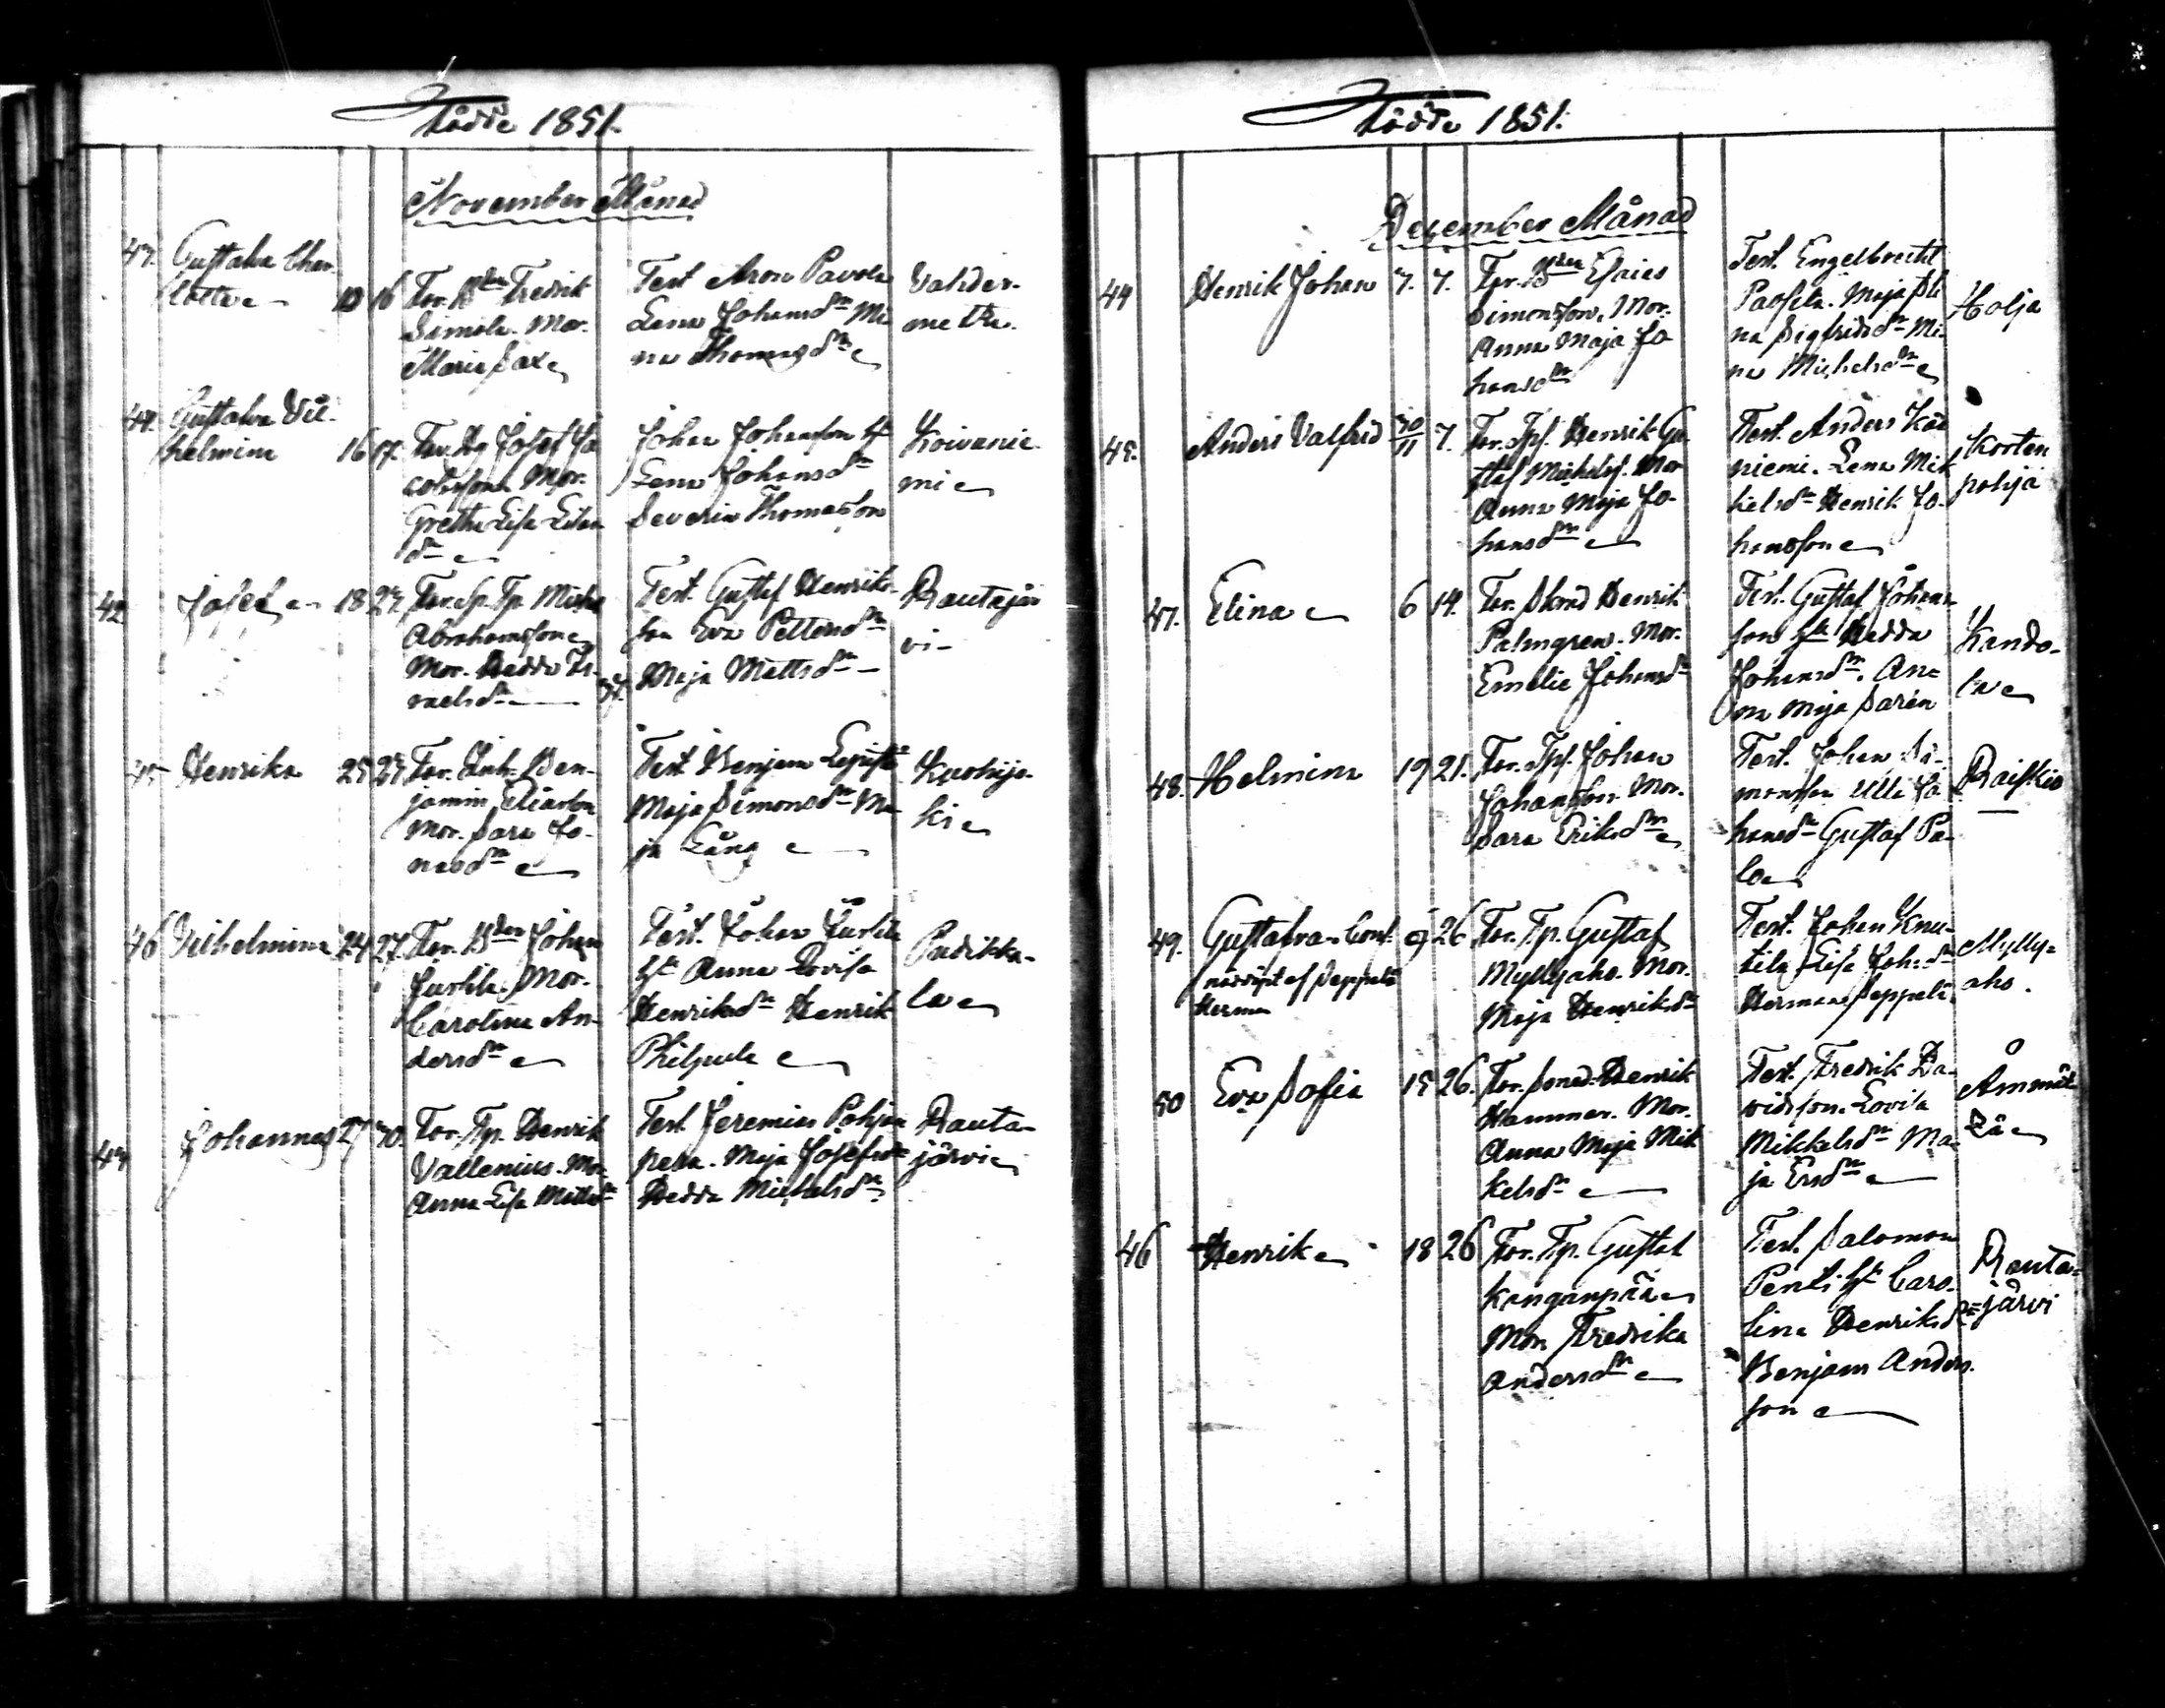 Födde 1851.
November Månad
Gustava Char-
lotta 10 16 Far. Bden Fredrik
Simola. Mor.
Maria Sax
Test Aron Pavola
Lena Johansdr Mi
na Thomasdr
Vahder-
metsa.
44. Gustava Vil-
helmina 16 17. Far. Dg Josef Ja
cobsson Mor.
Greta Lisa
dr
Johan Johansson h
Lena Johansdr
Severin Thomasson
Koivunie-
mi
42 Josef 18 27. Far. Sp. Tp. Michel
Abrahamsson
Mor. Hedda Is-
raelsdr
Test. Gustaf Henriks-
son Eva Pettersdr
Maja Mattsdr
Rautajär
vi
45 Henrika 25 27 Far. Inh. Ben-
jamin Eliasson
Mor. Sara Jo-
nasdr
Test Benjam
Maja Simonsdr Ma-
ja Lång
Kuohijo-
ki
46 Vilhelmina 24 27. Far. Bden Johan
Jussila. Mor.
Carolina An-
dersdr
Test. Johan Jussila
h Anna Lovisa
Henriksdr Henrik
Philpula
Pudikka-
la
47 Johannes 27 30. Far. Tp. Henrik
Vallenius. Mor
Anna Lisa Mattsdr
Test Jeremias Pohjan
pera. Maja Josefsdr
Hedda Michelsdr
Rauta-
järvi
Födde 1851.
December Månad
44 Henrik Johan 7. 7. Far. Bden Esaias
Simonsson, Mor.
Anna Maja Jo
hansdr
Test. Engelbrecht
Paosila. Maja Sti
na Sigfridsdr Mi-
na Michelsdr
Holja
45. Anders Valfrid 30/11 7. Far. Tpf. Henrik Gu
staf Michelss. Mor
Anna Maja Jo-
hansdr
Test. Anders Kää
niemi. Lena Mik
kelsdr Henrik Jo-
hansson
Korten
pohja
47. Elina 6 14. Far. Skräd Henrik
Palmgren. Mor.
Emelie Johansdr
Test. Gustaf Johans-
son h Hedda
Johansdr. An-
na Maja Sarén
Kando-
la
48. Helmina 19 21. Far. Tpf. Johan
Johansson. Mor.
Sara Eriksdr
Test. Johan Si-
monsson Ulla Jo
hansdr Gustaf Pa-
lo
Raiskio
49. Gustafva 9 26 Far. Tp. Gustaf
Myllyaho. Mor.
Maja Henriksdr
nödd. af Seppälä
Herman
Test. Johan Knu-
tila Lisa Johsdr
Herman Seppälä
Mylly-
aho.
50 Eva Sofia 15 26. Far. Smed Henrik
Hammar. Mor.
Anna Maja Mik
kelsdr
Test. Fredrik Da-
vidsson. Lovisa
Mikkelsdr Ma-
ja Ersdr
Ämmät
sä
46 Henrik 18 26 Far. Tp. Gustaf
Kanganpää
Mor. Fredrika
Andersdr
Test. Salomon
Penti h Caro-
lina Henriksdr
Benjam Anders-
son
Rauta-
järvi